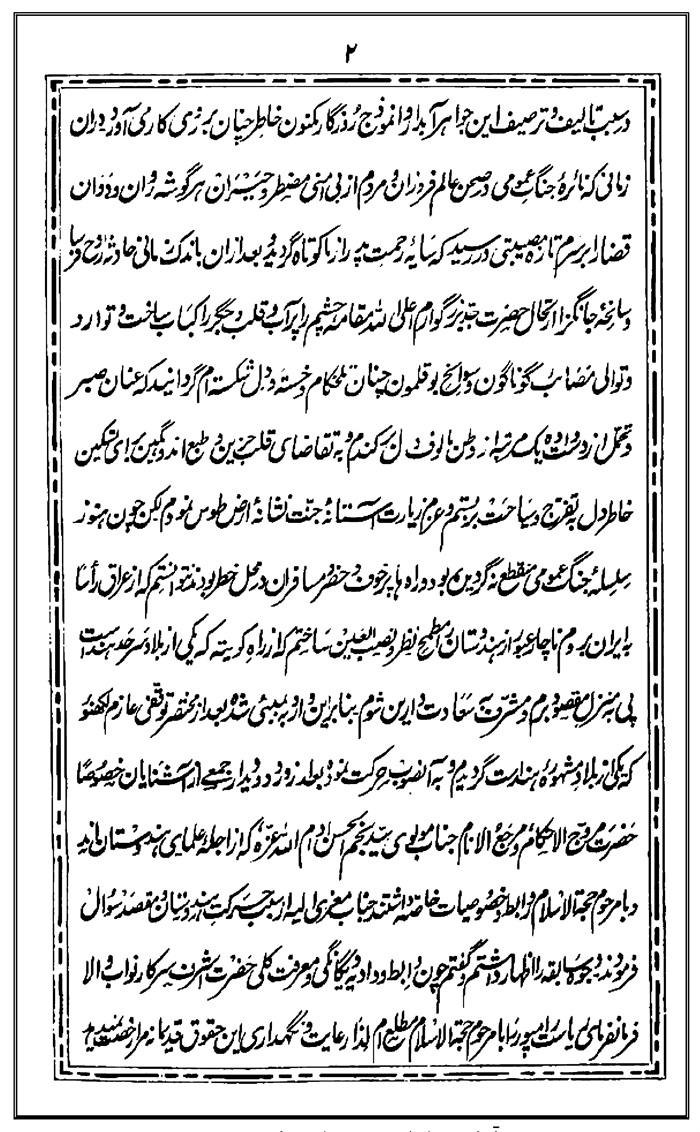 ۲
در سبب تالیف و ترصیف این جواهر آبدار و انموذج روزگار مکنون خاطر چنان بر روی کار می آورد در آن
زمانی که نائرهٔ جنگ عمومی در صحن عالم فروزان و مردم از بی امنی مضطر و حیران هر گوشه وزان و دوان
قضا را بر سرم تازه مصیبتی در رسید که سایه رحمت پدر را زما کوتاه گردید و بعد ازان باندک مانی حادثه روح فرسا
و سانحهٔ جانگزا ارتحال حضرت جد بزرگوارم اعلی الله مقامه چشمم را پرآب و قلب و جگر را کباب ساخت و توارد
و توالی مصائب گوناگون و سوانح بوقلمون چنان تلخکام و خسته و دل شکسته ام گردانید که عنان صبر
و تحمل از دست داده یک مرتبه از وطن مالوف دل برکندم و به تقاضای قلب حزین و طبع اندوهگین برای تسکین
خاطر دل به تفرج و سیاحت بربستم و عزم زیارت آستانهٔ جنت نشانهٔ ارض طوس نمودم لیکن چون هنوز
سلسلهٔ جنگ عمومی منقطع نه گردیده بود و راه ها پرخوف و خطر و مسافران در محل خطر بودند نتوانستم که از عراق رأسا
به ایران بروم ناچار عبور از هندوستان را مطمح نظر و نصب العین ساختم که از راه کویته که یکی از بلاد سرحد هند است
پی به منزل مقصود برم و مشرف به سعادت دارین شوم بنابرین وارد به بمبئی شده بعد از مختصر توقفی عازم لکهنو
که یکی از بلاد مشهوره هند است گردیدم و به آنصوب حرکت نمود بعد از ورود و دیدار جمعی از آشنایان خصوصا
حضرت مروج الاحکام و مرجع الانام جناب مولوی سید نجم الحسن دام الله عزه که از اجله علمای هندوستان اند
و با مرحوم حجة الاسلام روابط و خصوصیات خاصه داشتند جناب معزی الیه از سبب حرکت هندوستان و مقصد سؤال
فرمودند وجوه سابقه را اظهار داشتم و گفتم چون روابط و داد و یگانگی و معرفت کلی حضرت اشرف سرکار نواب والا
فرمانفرمای ریاست رامپور را با مرحوم حجة الاسلام مطلع ام لذا رعایت و نگهداری این حقوق قدیمانه مرا